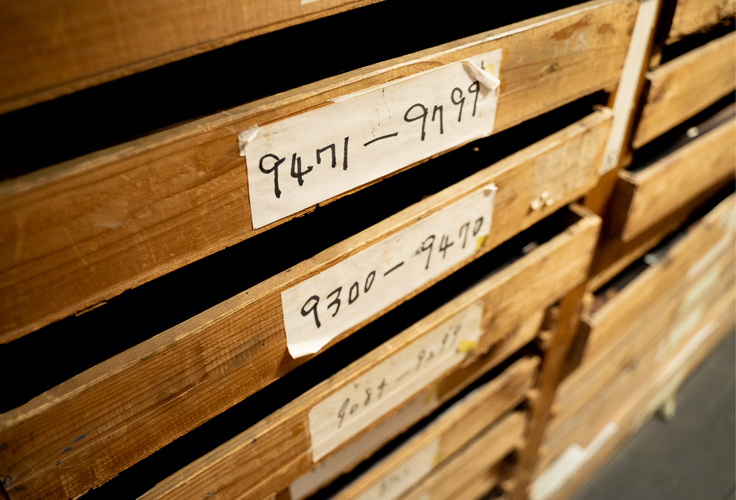 9471-9799
9300-9470
9084-9299